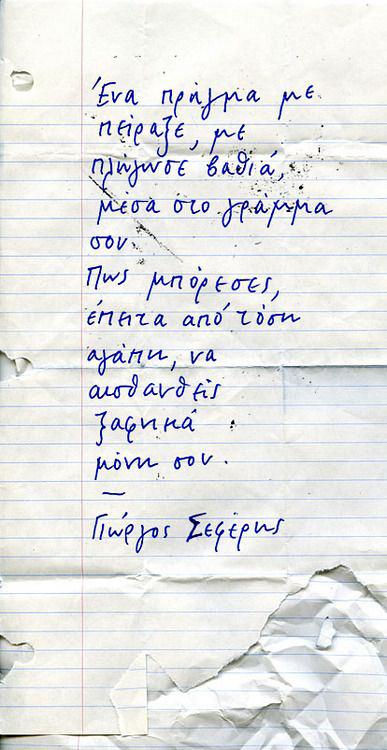 Ένα πράγμα με
πείραξε, με
πλήγωσε βαθιά,
μέσα στο γράμμα
σου.
Πως μπόρεσες,
έπειτα από τόση
αγάπη, να
αισθανθείς
ξαφνικά
μόνη σου.
—
Γιώργος Σεφέρης